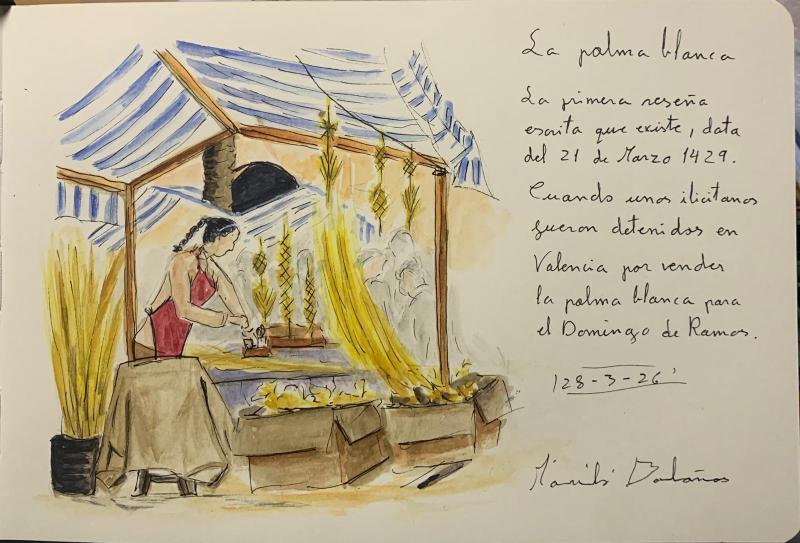 La palma blanca
La primera reseña
escrita que existe, data
del 21 de Marzo 1429.
Cuando unos ilicitanos
fueron detenidos en
Valencia por vender
la palma blanca para
el Domingo de Ramos.
28-3-26'
Bolaños